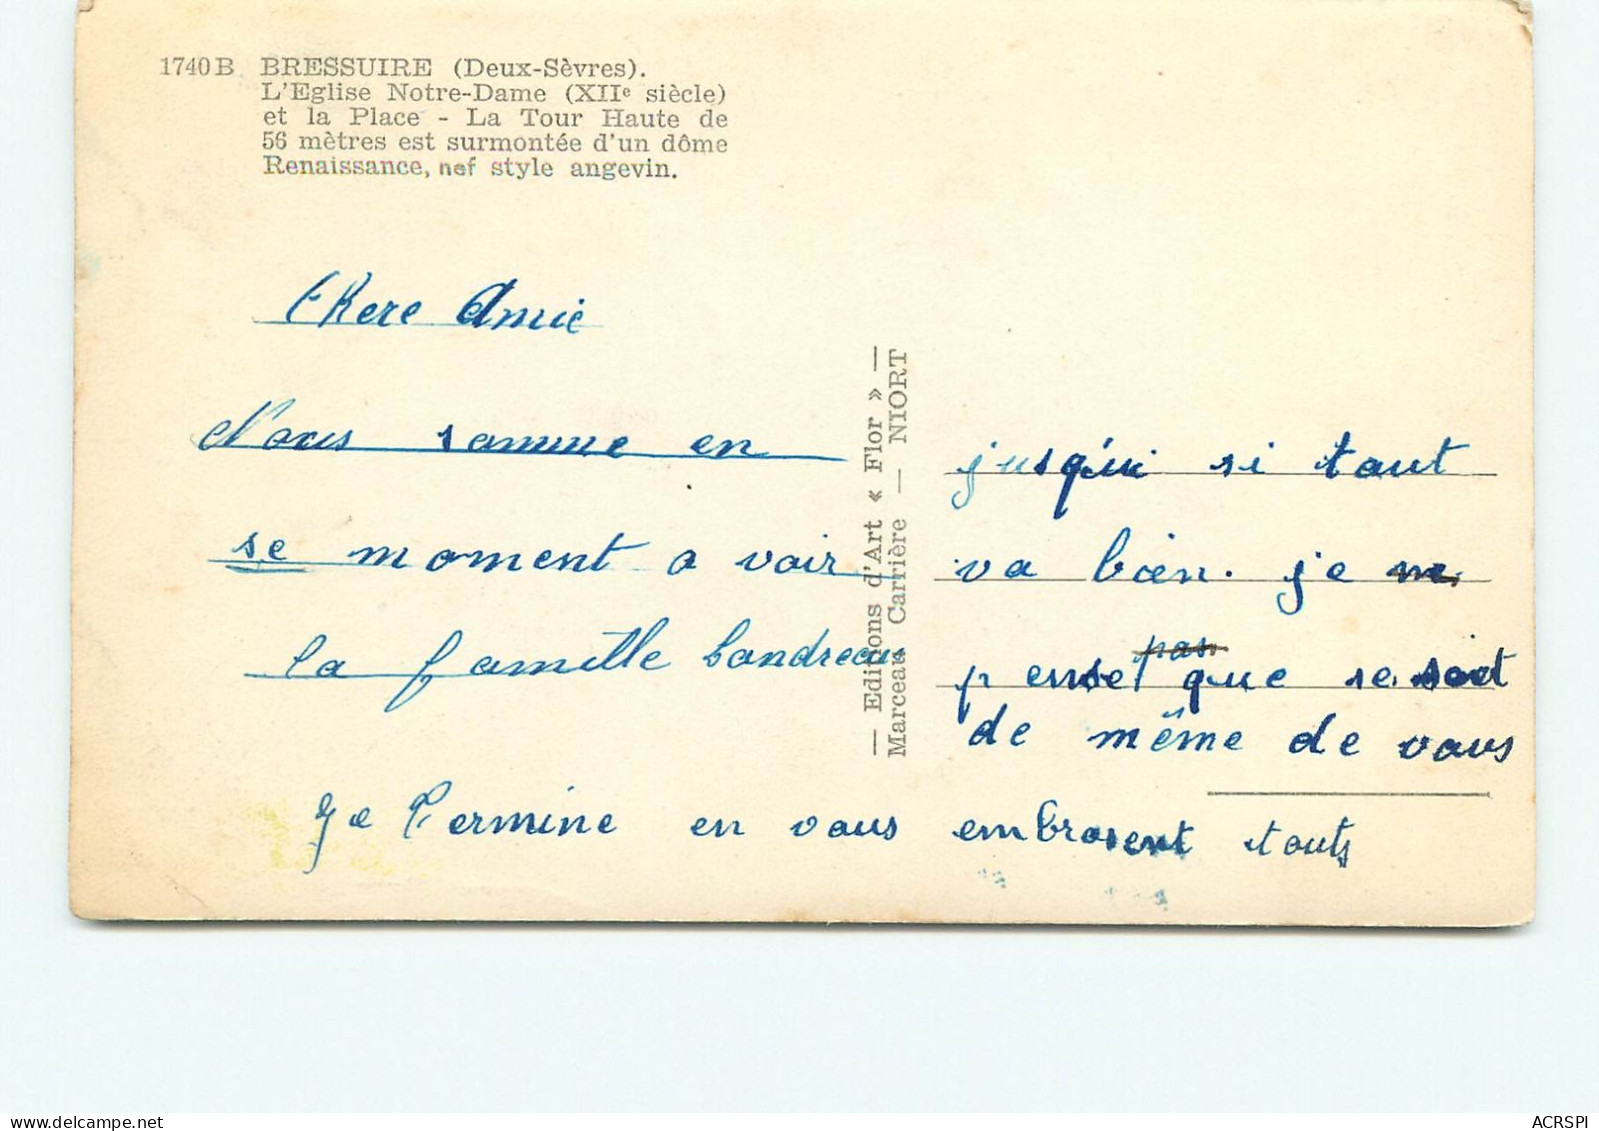 1740 B BRESSUIRE (Deux-Sèvres).
L'Eglise Notre-Dame (XIIe siècle)
et la Place - La Tour Haute de
56 mètres est surmontée d'un dôme
Renaissance, nef style angevin.
Chere Amie
Nous somme en
se moment a voir
la famille bandreau
— Editions d'Art « Flor » —
Marceau Carrière — NIORT
jusqu'ui si tout
va bien. je ne
pense pas que se soit
de même de vous
Je termine en vous embrasent touts
ACRSPI
delcampe.net